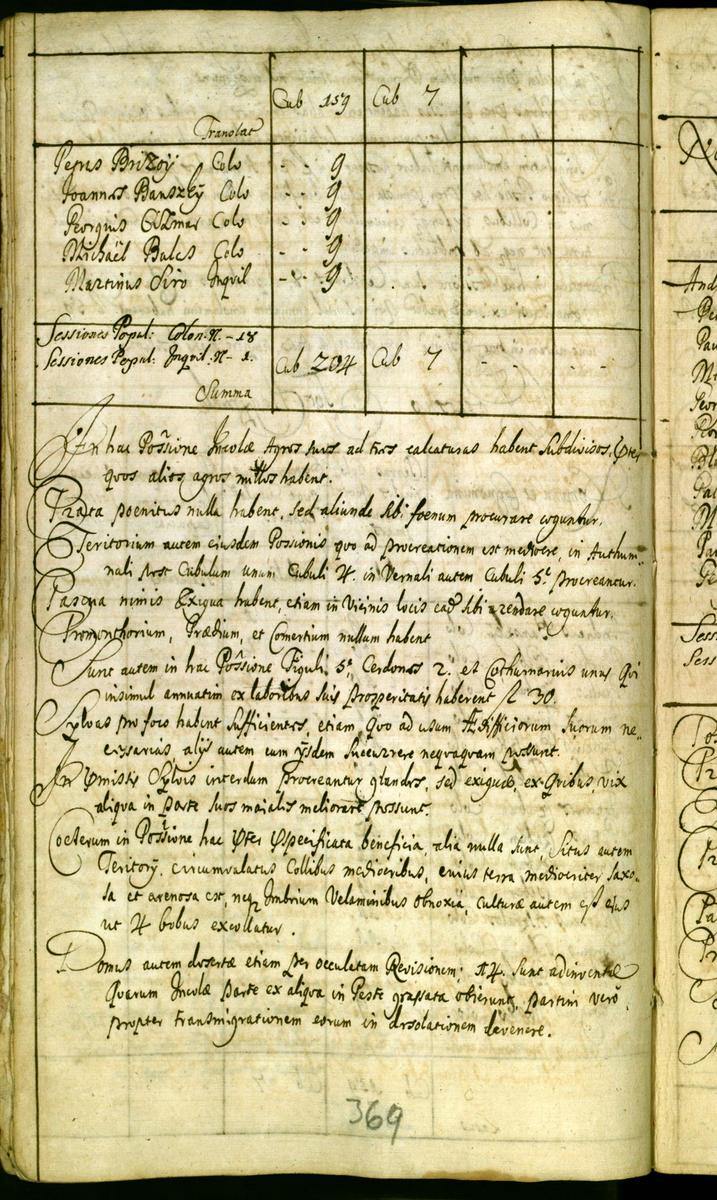 Cub 159 Cub 7
Translat
Petrus Brizoy Colo - - 9
Joannes Banszky Colo - - 9
Georgius Cismar Colo - - 9
Michaël Bales Colo - - 9
Martinus Siro Inquil - - 9
Sessiones Popul: Colon. N. - 18
Sessiones Popul: Inquil. N. - 1. Cub 204 Cub 7 - - - -
Summa
In hac Possione Incolæ Agros suos ad tres calcaturas habent subdivisos, pter
quos alios agros nullos habent.
Prata poenitus nulla habent, sed aliunde sibi foenum procurare coguntur.
Teritorium autem eiusdem Possionis quo ad procreationem est mediocre, in Authum
nali post Cubulum unum Cubuli 4. in Vernali autem Cubuli 5. procreantur.
Pascua nimis Exigua habent, etiam in Vicinis locis ead sibi arendare coguntur.
Promonthorium, Prædium, et Comertium nullum habent
Sunt autem in hac Possione Figuli 5. Cerdones 2. et Cothurnarius unus Qui
insimul annuatim ex laboribus suis prosperitatis haberent fl 30.
Sylvas pro foco habent sufficientes, etiam quo ad usum Ædifficiorum suorum ne„
cessarias, alijs autem cum ijsdem succurrere nequaquam possunt.
In pmistis Sylvis interdum procreantur glandes, sed exiguæ, ex quibus vix
aliqua in parte suos maiales meliorare possunt.
Coeterum in Possione hac pter pspecificata beneficia, alia nulla sunt, Situs autem
Teritorij, circumvalatus Collibus mediocribus, cuius terra mediocriter saxo„
sa et arenosa est, neq Imbrium Velaminibus obnoxia, culturæ autem est eius
ut 4 bobus excollatur.
Domus autem desertæ etiam per occulatam Revisionem; 14. sunt adinventæ
Quarum Incolæ parte ex aliqua in Peste grassata obierunt, partim vero
propter transmigrationem eorum in desolationem devenere.
369